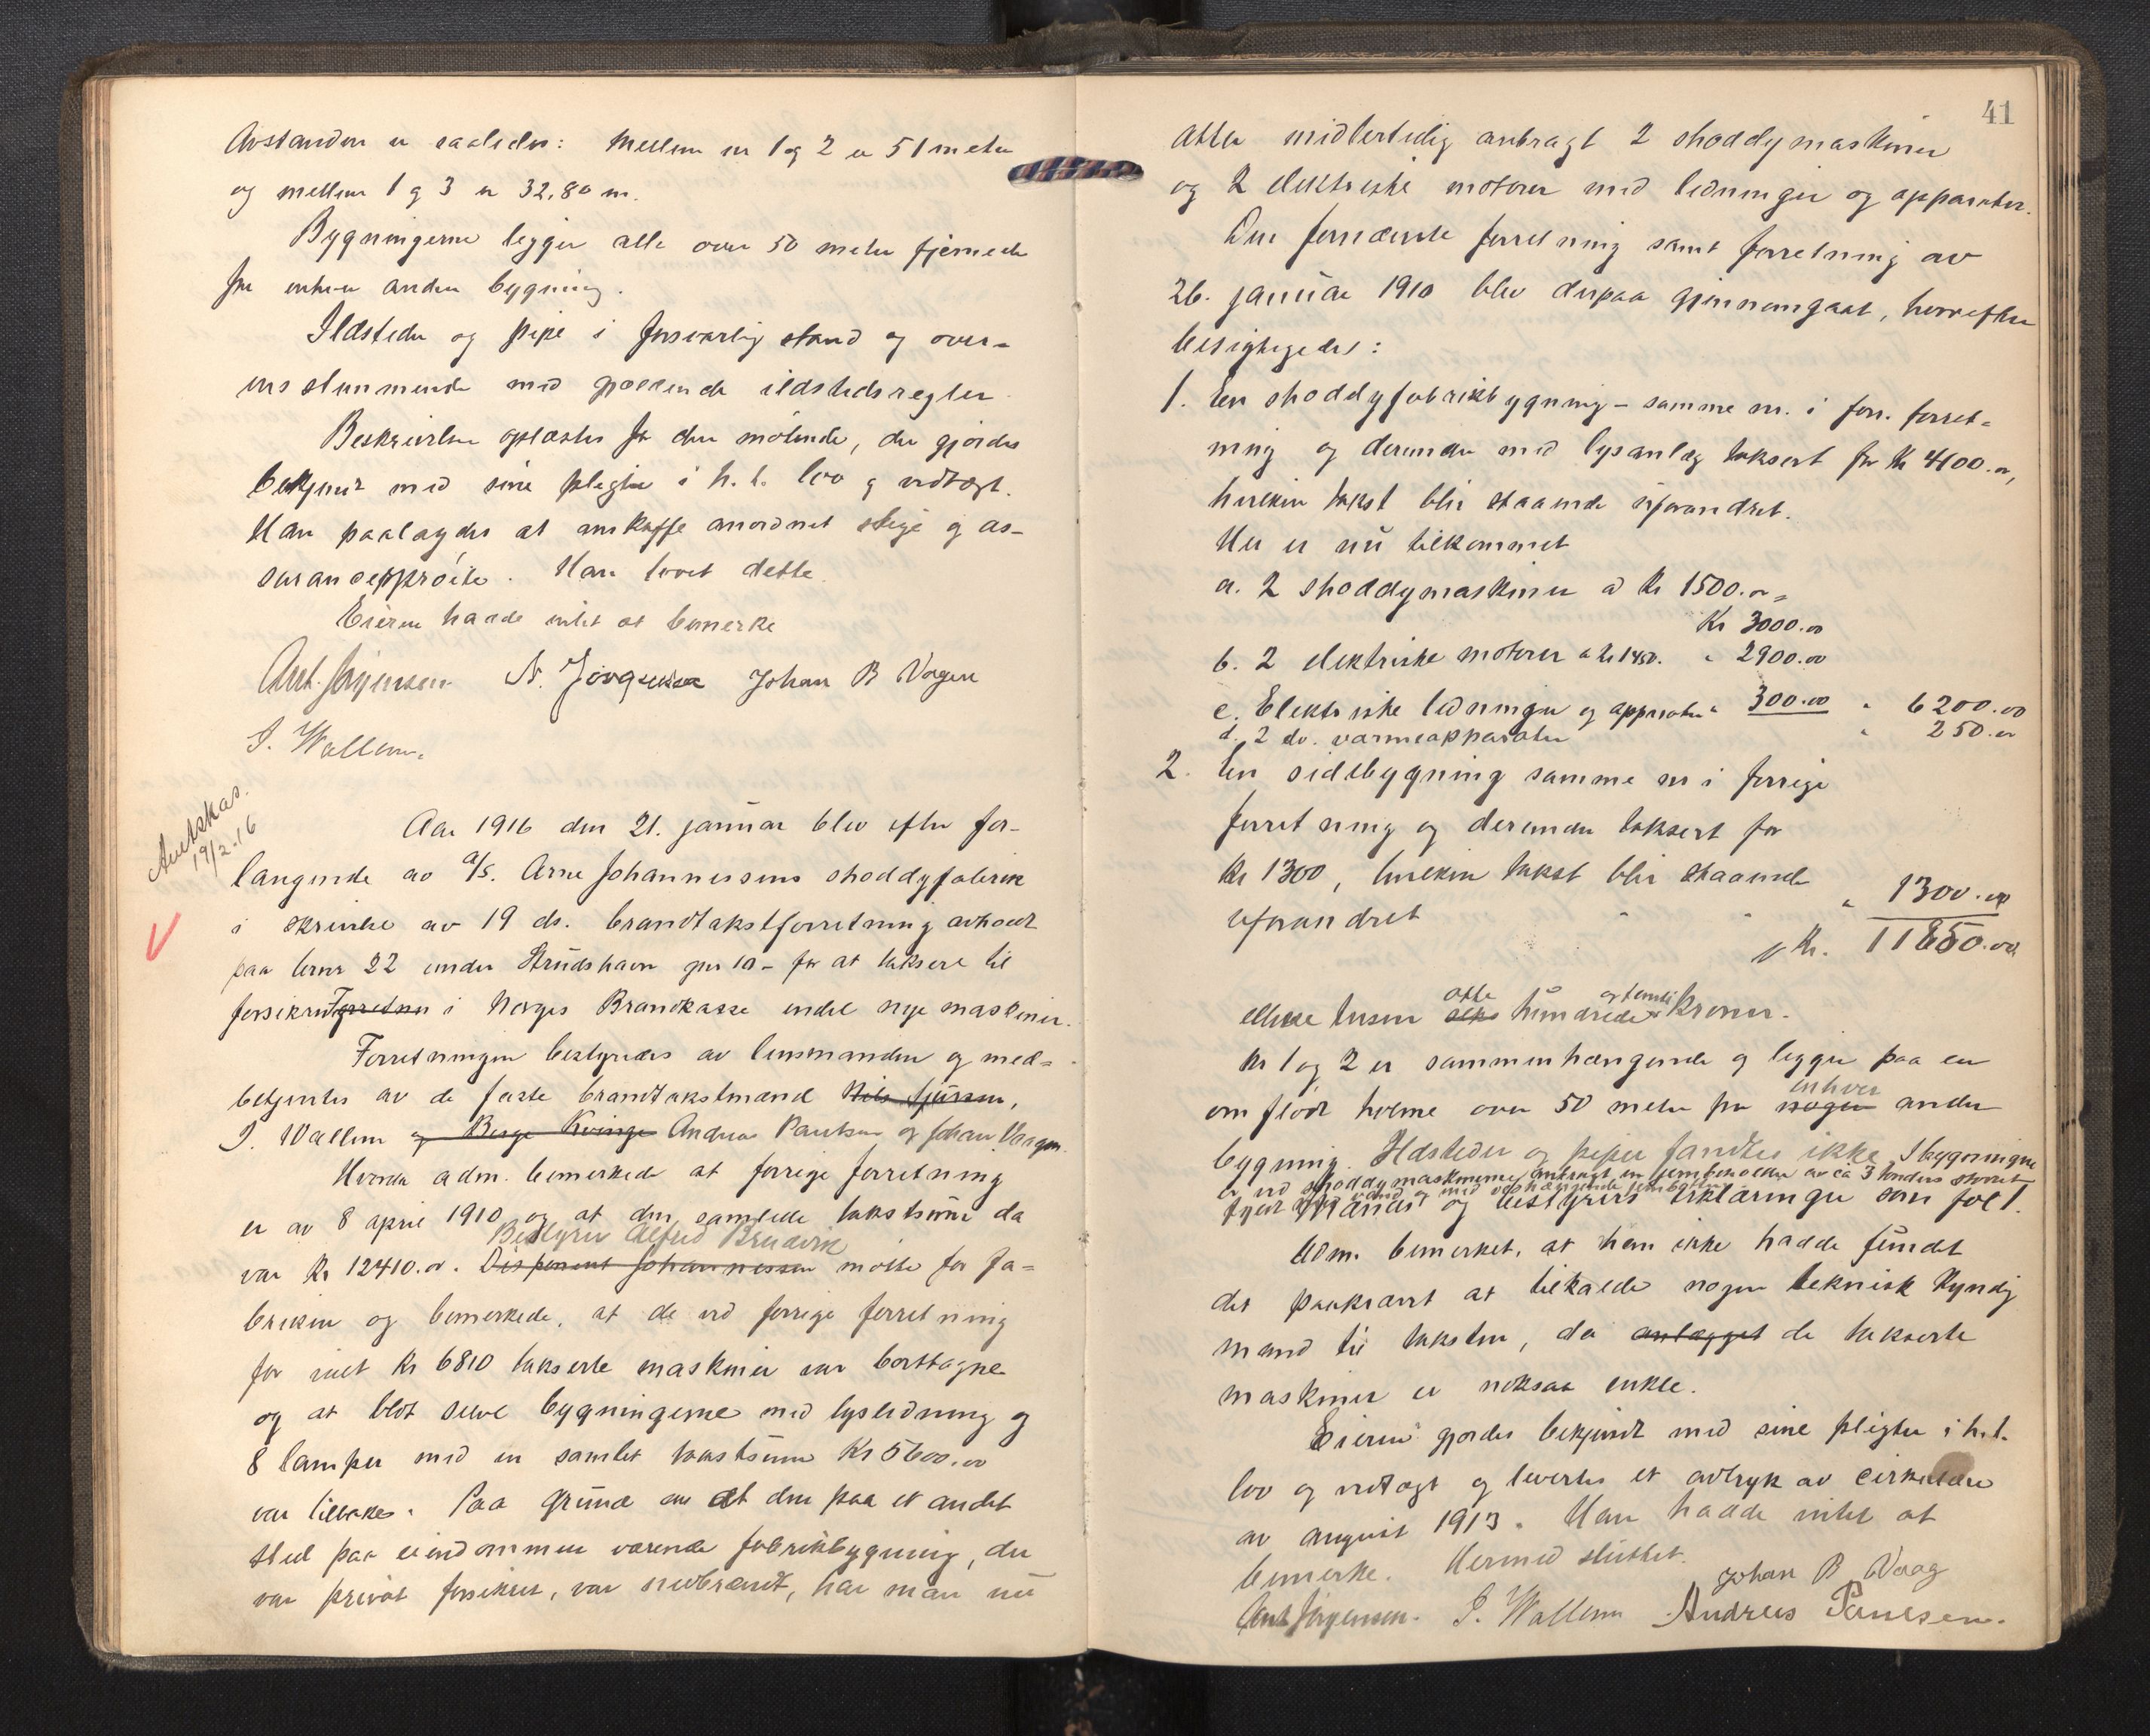 Avstanden er saaledes: Mellem nr 1 og 2 er 51 meter
og mellem 1 og 3 er 32,80 m.
Bygningerne ligger alle over 50 meter fjernede
fra enhver anden bygning.
Ildsteder og pipe i forsvarlig stand og over-
ensstemmende med gjældende ildstedsregler.
Beskrivelsen oplæstes for den møtende, der gjordes
bekjendt med sine pligter i h.t. lov og vedtægt.
Han paalagdes at anskaffe anordnet stige og as-
surancesprøite. Han lovet dette.
Eieren hadde intet at bemerke
Ant. Jørgensen N. Jörgensen Johan B Vågen
I. Wallem.
Avetskas.
19/2-16
Aar 1916 den 21. januar blev efter for-
langende av A/S. Arne Johannesens shoddyfabrik
i skrivelse av 19 ds. brandtakstforretning avholdt
paa brnr 22 under Strudshavn gnr 10 - for at taksere til
forsikring Forretnin i Norges Brandkasse endel nye maskiner.
Forretningen bestyredes av lensmanden og med-
betjentes av de faste brandtakstmænd Nils Sjursen,
I. Wallem og Berge Kvinge Andreas Paulsen og Johan Vaagen.
Herunder adm. bemerkede at forrige forretning
er av 8 april 1910 og at den samlede takstsum da
Bestyrer Alfred Brudvik
var Kr 12410.00. Disponent Johannessen møtte for fa-
briken og bemerkede, at de ved forrige forretning
for ialt Kr 6810 takserte maskiner var borttagne
og at blot selve bygningerne med lysledning og
8 lamper med en samlet takstsum Kr 5600.00
var tilbakes. Paa grund av at den paa et andet
sted paa eiendommen værende fabrikbygning, der
var privat forsikret, var nedbrændt, har man nu
41
atter midlertidig anbragt 2 shoddymaskiner
og 2 elektriske motorer med ledninger og apparater.
Den fornævnte forretning samt forretning av
26. januar 1910 blev derpaa gjennemgaat, hvorefter
besigtigedes:
1. En shoddyfabrikbygning - samme nr. i forr. forret-
ning og derunder med lysanlæg taksert for Kr 4100.00,
hvilken takst blir staaende uforandret.
Her er nu tilkommet
a. 2 shoddymaskiner a Kr 1500.00 =
Kr 3000.00
b. 2 elektriske motorer a kr 1450. " 2900.00
c. Elektriske ledninger og apparater " 300.00 " 6200.00
d. 2 do. varmeapparater " 250.00
2. En sidebygning samme nr i forrige
forretning og derunder taksert for
Kr 1300, hvilken takst blir staaende
uforandret " " " 1300.00
Kr. 11850.00
elleve tusen seks otte hundrede og femti kroner.
Nr 1 og 2 er sammenhængende og ligger paa en
omflødt holme over 50 meter fra nogen enhver anden
bygning. Ildsteder og piper fandtes ikke. I bygningen
er ved shoddymaskinerne anbragt en jernbeholder av ca 3 tønders størrelse
fyldt med vand og med vedhængende
Mænds og bestyrers erklæringer som fol 1.
Adm. bemerket, at han ikke hadde fundet
det paakrævet at tilkalde nogen teknisk kyndig
mand til taksten, da anlægget de takserte
maskiner er noksaa enkle.
Eieren gjordes bekjendt med sine pligter i h.t.
lov og vedtægt og levertes et avtryk av cirkulære
av august 1913. Han hadde intet at
bemerke. Hermed sluttet.
Johan B Vaag
Ant Jørgensen. I. Wallem Andreas Paulsen.